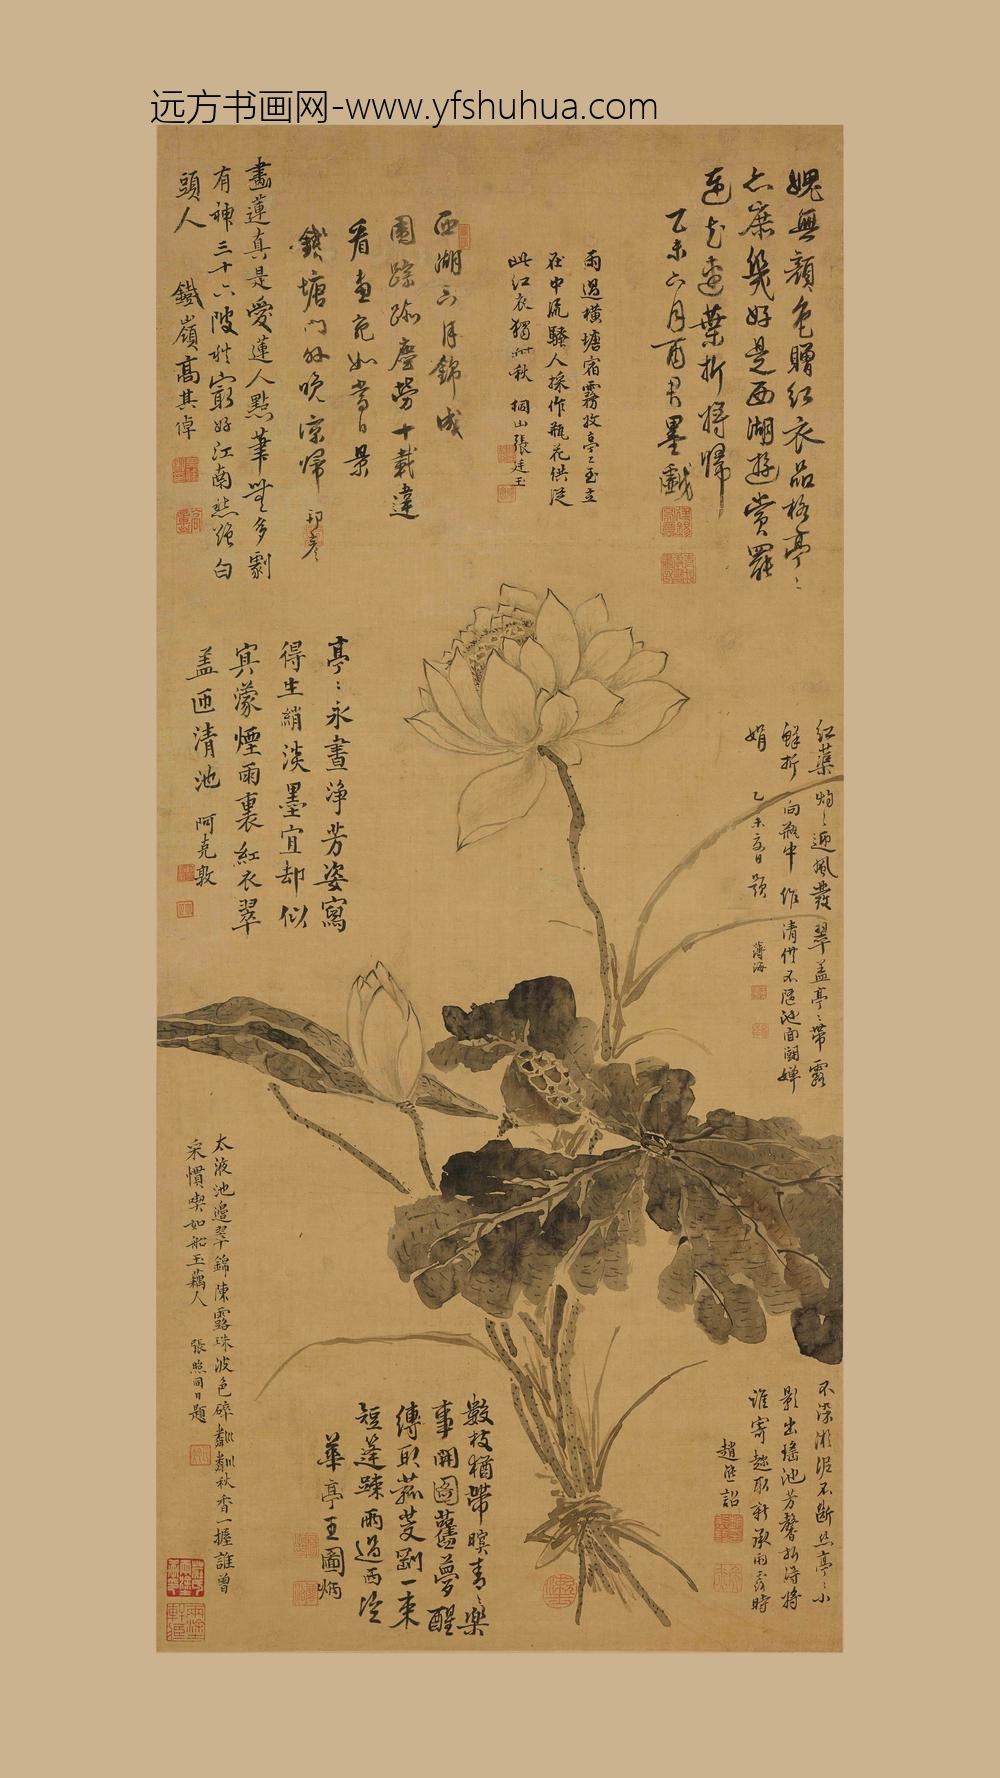 远方书画网-www.yfshuhua.com
媿無顏色贈紅衣品格亭〻
亦崇幾好是西湖遊賞罷
連花連葉折將歸
乙未六月酉君墨戲
雨過橫塘宿霧收亭〻玉立
在中流騷人採作瓶花供從
此紅衣獨一秋 桐山張廷玉
西湖六月錦成
圍踪跡塵勞十載違
看畫宛如當日景
錢塘門外晚涼歸 邦彥
畫蓮真是愛蓮人點筆無多劉
有神三十六陂秋窮好江南愁絕白
頭人 鐵嶺高其倬
亭〻永晝淨芳姿寫
得生綃淡墨宜却似
寘濛煙雨裏紅衣翠
盖迊清池 阿克敦
紅蕖灼〻迎風發翠盖亭〻帶露
鮮折向瓶中作清供不隨池面鬭嬋
娟 乙未夏日題 薄海
太液池邊翠錦陳露珠波色碎粼粼秋香一握誰曾
采慣喫如船玉藕人 張照同日題
數枝猶帶暝青〻樂
事開圖舊夢醒
縛取菰芰剛一束
短蓬踈雨過西泠
華亭王圖炳
不染淤泥不斷絲亭〻小
影出瑤池芳馨折得將
誰寄趣取新承雨露時
趙熊詔